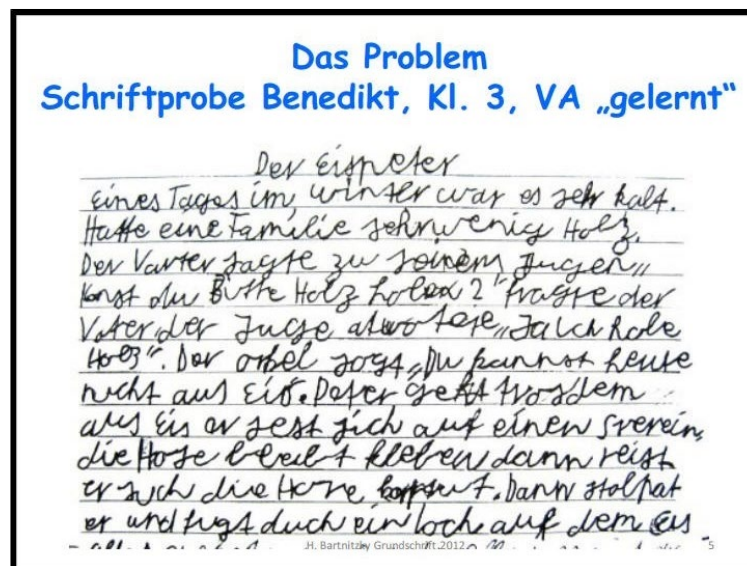 Das Problem
Schriftprobe Benedikt, Kl. 3, VA „gelernt“
Der Eispeter
Eines Tages im, winter war es sehr kalt.
Hatte eine Familie sehr wenig Holz.
Der Varter sagte zu seinem Jugen„
konst du Bitte Holz holen?" fragte der
Vater, der Juge „Ja ich hole
Holz". Der sagt „Du kannst heute
nicht aus Eis. Peter geht trosdem
aus Eis er sest sich auf einen
die Hose bleibt kleben dann reist
er sich die Hose Dann stolpat
er und duch ein loch auf dem Eis
H. Bartnitzky Grundschrift 2012
5